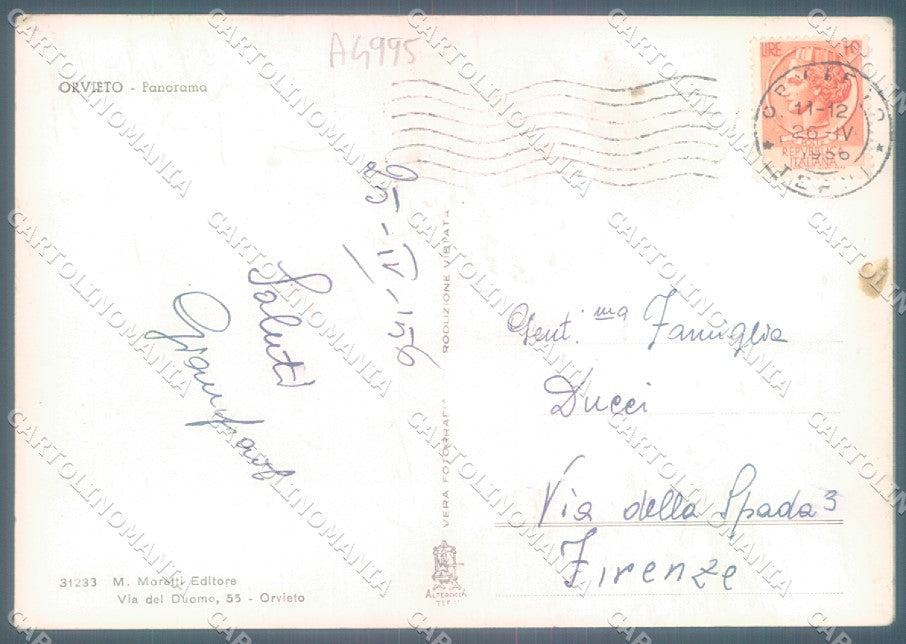 A4995
ORVIETO - Panorama
LIRE 10
ORVIETO
11-12
26-IV
1956
TERNI
POSTE
REPVBBLICA
ITALIANA
25-IV-156
Saluti
VERA FOTOGRAFIA
RIPRODUZIONE VIETATA
Gent.ma Famiglia
Ducci
Via della Spada 3
Firenze
31233 M. Moretti Editore
Via del Duomo, 55 - Orvieto
ALTEROCCA
TERNI
CARTOLINOMANIA